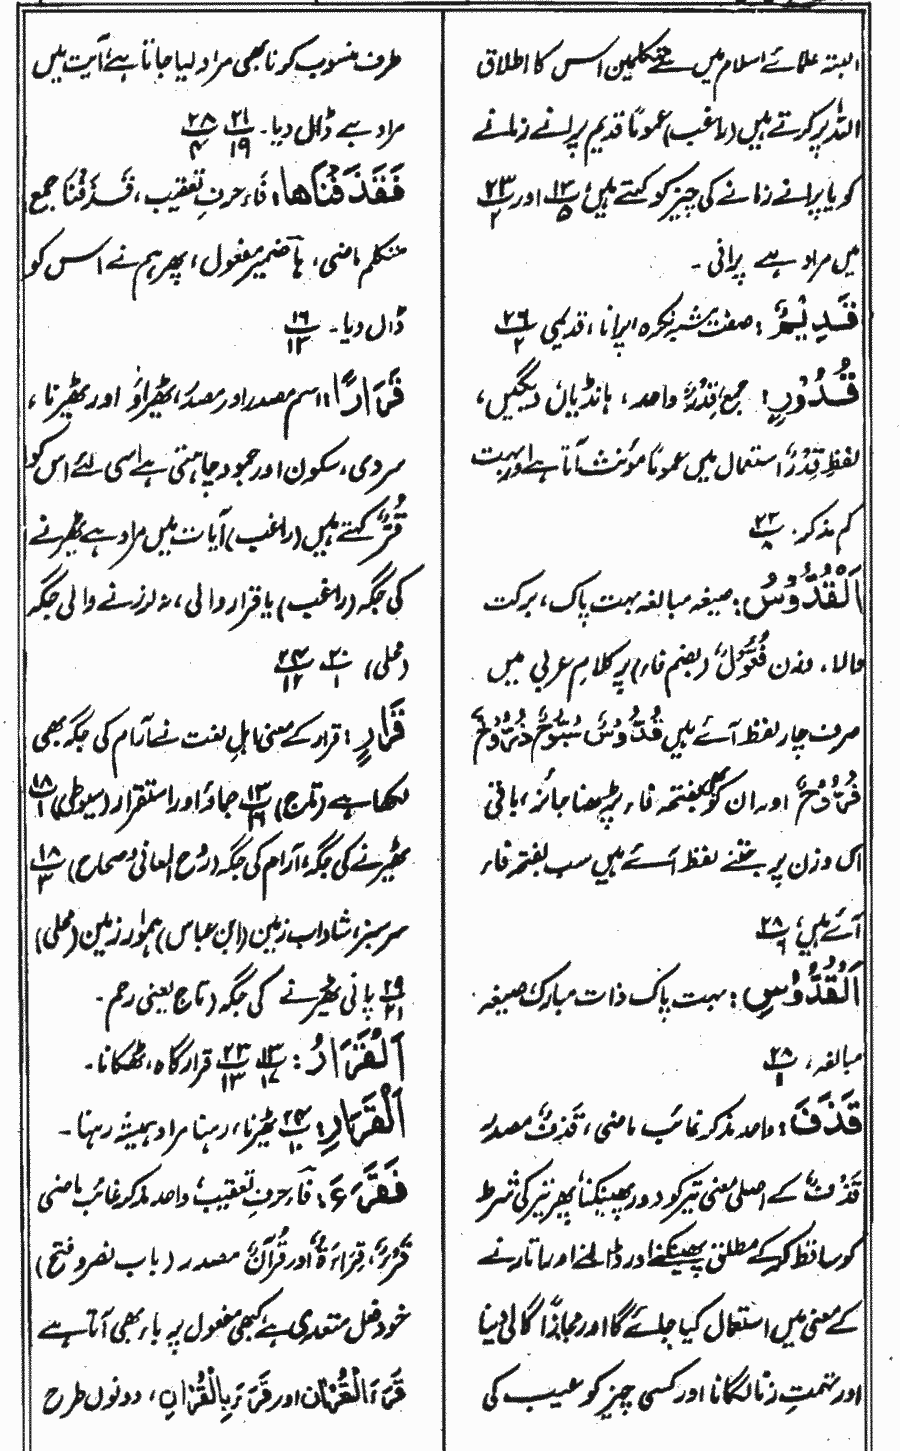 البتہ علمائے اسلام میں سے متکلمین اس کا اطلاق
اللہ پر کرتے ہیں (راغب) عموماً قدیم پرانے زمانے
کو یا پرانے زمانے کی چیز کو کہتے ہیں ۱۳/۵ اور ۲۳/۲
میں مراد ہے پرانی ۔
قَدِیْمٌ: صفت مشبہ نکرہ، پرانا، قدیمی ۲۶/۲
قُدُوْرٍ: جمع، قِدْرٌ واحد، ہانڈیاں دیگیں،
لفظ قِدْرٌ استعمال میں عموماً مؤنث آتا ہے اور بہت
کم مذکر ۲۲/۸
اَلْقُدُّوْسُ: صیغہ مبالغہ بہت پاک، برکت
والا، وزن فُعُّوْلٌ (بضم فاء) پر کلام عربی میں
صرف چار لفظ آئے ہیں قُدُّوْسٌ سُبُّوْحٌ ذُرُّوْحٌ
فُرُّوْجٌ اور ان کو بفتحہ فاء پڑھنا جائز، باقی
اس وزن پر جتنے لفظ آئے ہیں سب بفتحہ فاء
آئے ہیں ۲۸/۶
اَلْقُدُّوْسِ: بہت پاک ذات مبارک، صیغہ
مبالغہ، ۲۸/۱۱
قَذَفَ: واحد مذکر غائب ماضی، قَذْفٌ مصدر
قَذْفٌ کے اصلی معنی تیر کو دور پھینکنا، پھر تیر کی شرط
کو ساقط کر کے مطلق پھینکنے اور ڈالنے اور اتارنے
کے معنی میں استعمال کیا جانے لگا اور مجازاً گالی دینا
اور تہمت زنا لگانا اور کسی چیز کو عیب کی
طرف منسوب کرنا بھی مراد لیا جاتا ہے، آیت میں
مراد ہے ڈال دیا۔ ۲۱/۱۹ ۲۸/۴
فَقَذَفْنٰهَا: فَاء حرفِ تعقیب، قَذَفْنَا جمع
متکلم ماضی، ہا ضمیر مفعول، پھر ہم نے اس کو
ڈال دیا۔ ۱۶/۱۳
قَرَارًا: اسم مصدر اور مصدر، ٹھیراؤ اور ٹھیرنا،
سردی، سکون اور جمود چاہتی ہے اسی لئے اس کو
قُرٌّ کہتے ہیں (راغب) آیات میں مراد ہے ٹھیرنے
کی جگہ (راغب) یا قرار والی، نہ لرزنے والی جگہ
(محلی) ۲۰/۱ ۲۴/۱۲
قَرَارٍ: قرار کے معنی اہل لغت نے آرام کی جگہ بھی
لکھا ہے (تاج) ۱۳/۱۶ جماؤ اور استقرار (سیوطی) ۱۸/۱
ٹھیرنے کی جگہ، آرام کی جگہ (روح المعانی وصحاح) ۱۸/۳
سرسبز، شاداب زمین (ابن عباس) ہموار زمین (محلی)
۲۹/۲۱ پانی ٹھیرنے کی جگہ (تاج) یعنی رحم ۔
اَلْقَرَارُ: ۱۳/۱۷ ۲۳/۱۳ قرارگاہ، ٹھکانا ۔
اَلْقَرَارِ: ۲۴/۱۰ ٹھیرنا، رہنا مراد ہمیشہ رہنا ۔
فَقَرَءَہٗ: فَاء حرفِ تعقیب، واحد مذکر غائب ماضی
قَرْءٌ، قِرَاءَةٌ اور قُرْآنٌ مصدر (باب نصر و فتح)
خود فعل متعدی ہے کبھی مفعول پر باء بھی آتا ہے
قَرَءَ الْقُرْاٰنَ اور قَرَءَ بِالْقُرْاٰنِ، دونوں طرح